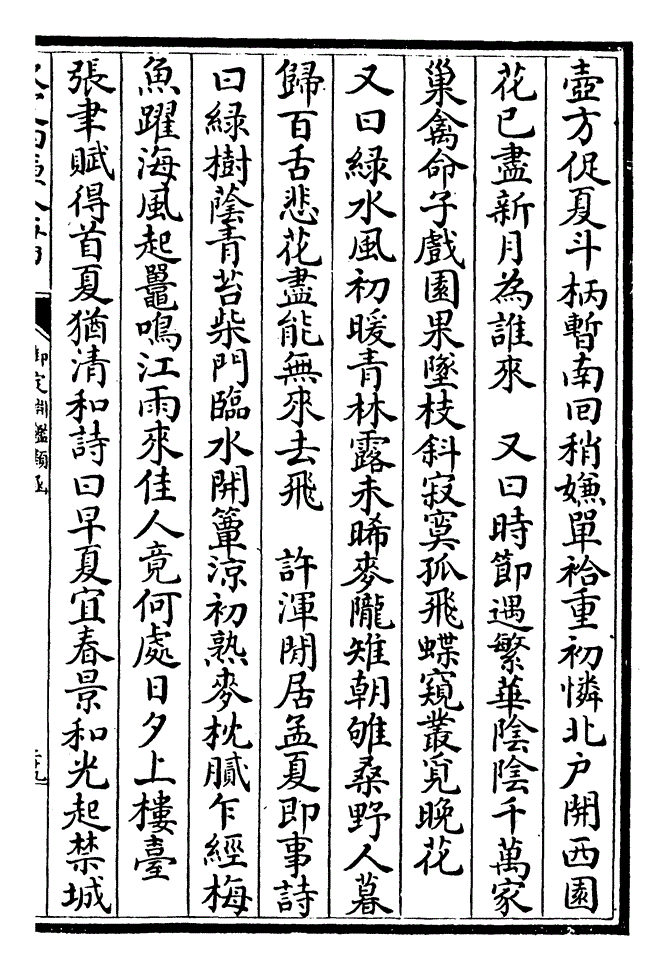 壺方促夏斗柄暫南回稍嫌單袷重初憐北户開西園
花已盡新月為誰來　又曰時節遇繁華陰陰千萬家
巢禽命子戲園果墜枝斜寂寞孤飛蝶窺叢覓晚花
又曰緑水風初暖青林露未晞麥隴雉朝雊桑野人暮
歸百舌悲花盡能無來去飛　許渾閒居孟夏即事詩
曰緑樹蔭青苔柴門臨水開簟涼初熟麥枕膩乍經梅
魚躍海風起鼉鳴江雨來佳人竟何處日夕上樓臺
張聿賦得首夏猶清和詩曰早夏宜春景和光起禁城
御定淵鑑類函